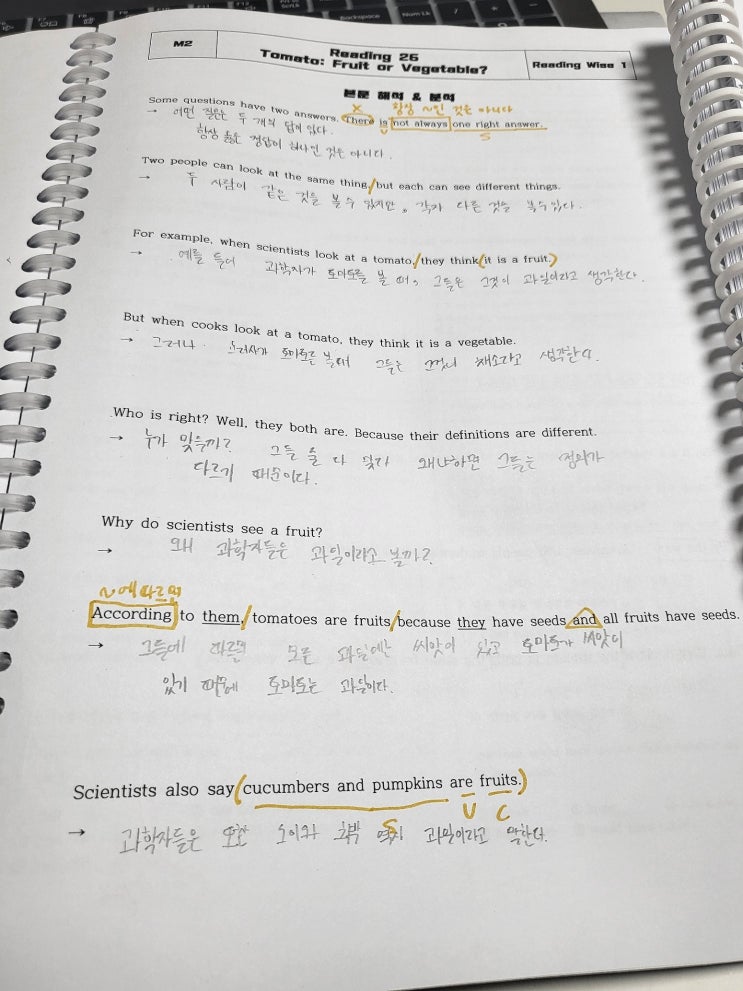 M2
Reading 26
Tomato: Fruit or Vegetable?
Reading Wise 1
본문 해석 & 분석
X 항상 ~인 것은 아니다
Some questions have two answers. There is not always one right answer.
V S
→ 어떤 질문은 두 개의 답이 있다.
항상 옳은 정답이 하나인 것은 아니다.
Two people can look at the same thing, / but each can see different things.
→ 두 사람이 같은 것을 볼 수 있지만, 각자 다른 것을 볼 수 있다.
For example, when scientists look at a tomato, / they think (it is a fruit.)
→ 예를 들어 과학자가 토마토를 볼 때, 그들은 그것이 과일이라고 생각한다.
But when cooks look at a tomato, they think it is a vegetable.
→ 그러나 요리사가 토마토를 볼때 그들은 채소라고 생각한다.
Who is right? Well, they both are. Because their definitions are different.
→ 누가 맞을까? 그들 둘 다 맞다 왜냐하면 그들은 정의가
다르기 때문이다.
Why do scientists see a fruit?
→ 왜 과학자들은 과일이라고 볼까?
~에 따르면
According to them, / tomatoes are fruits / because they have seeds and all fruits have seeds.
→ 그들에 따르면 모든 과일에는 씨앗이 있고 토마토가 씨앗이
있기 때문에 토마토는 과일이다.
Scientists also say (cucumbers and pumpkins are fruits.)
S V C
→ 과학자들은 또한 오이와 호박 역시 과일이라고 말한다.